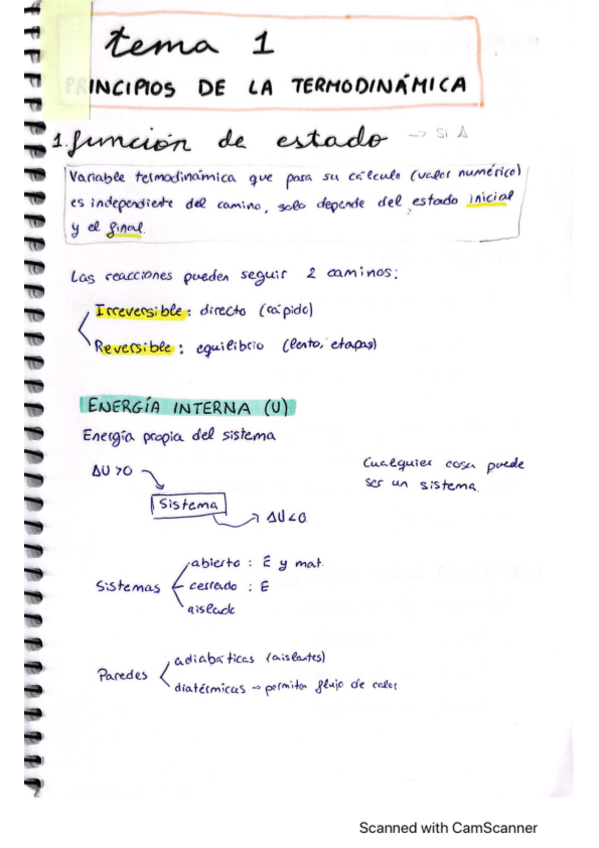 tema 1
PRINCIPIOS DE LA TERMODINÁMICA
1. función de estado → Si Δ
Variable termodinámica que para su cálculo (valor numérico)
es independiente del camino, solo depende del estado inicial
y el final.
Las reacciones pueden seguir 2 caminos:
Irreversible: directo (rápido)
Reversible: equilibrio (lento, etapas)
ENERGÍA INTERNA (U)
Energía propia del sistema
ΔU>0
Cualquier cosa puede
ser un sistema.
Sistema
ΔU<0
abierto : E y mat.
Sistemas cerrado : E
aislado
adiabáticas (aislantes)
Paredes
diatérmicas → permiten flujo de calor
Scanned with CamScanner